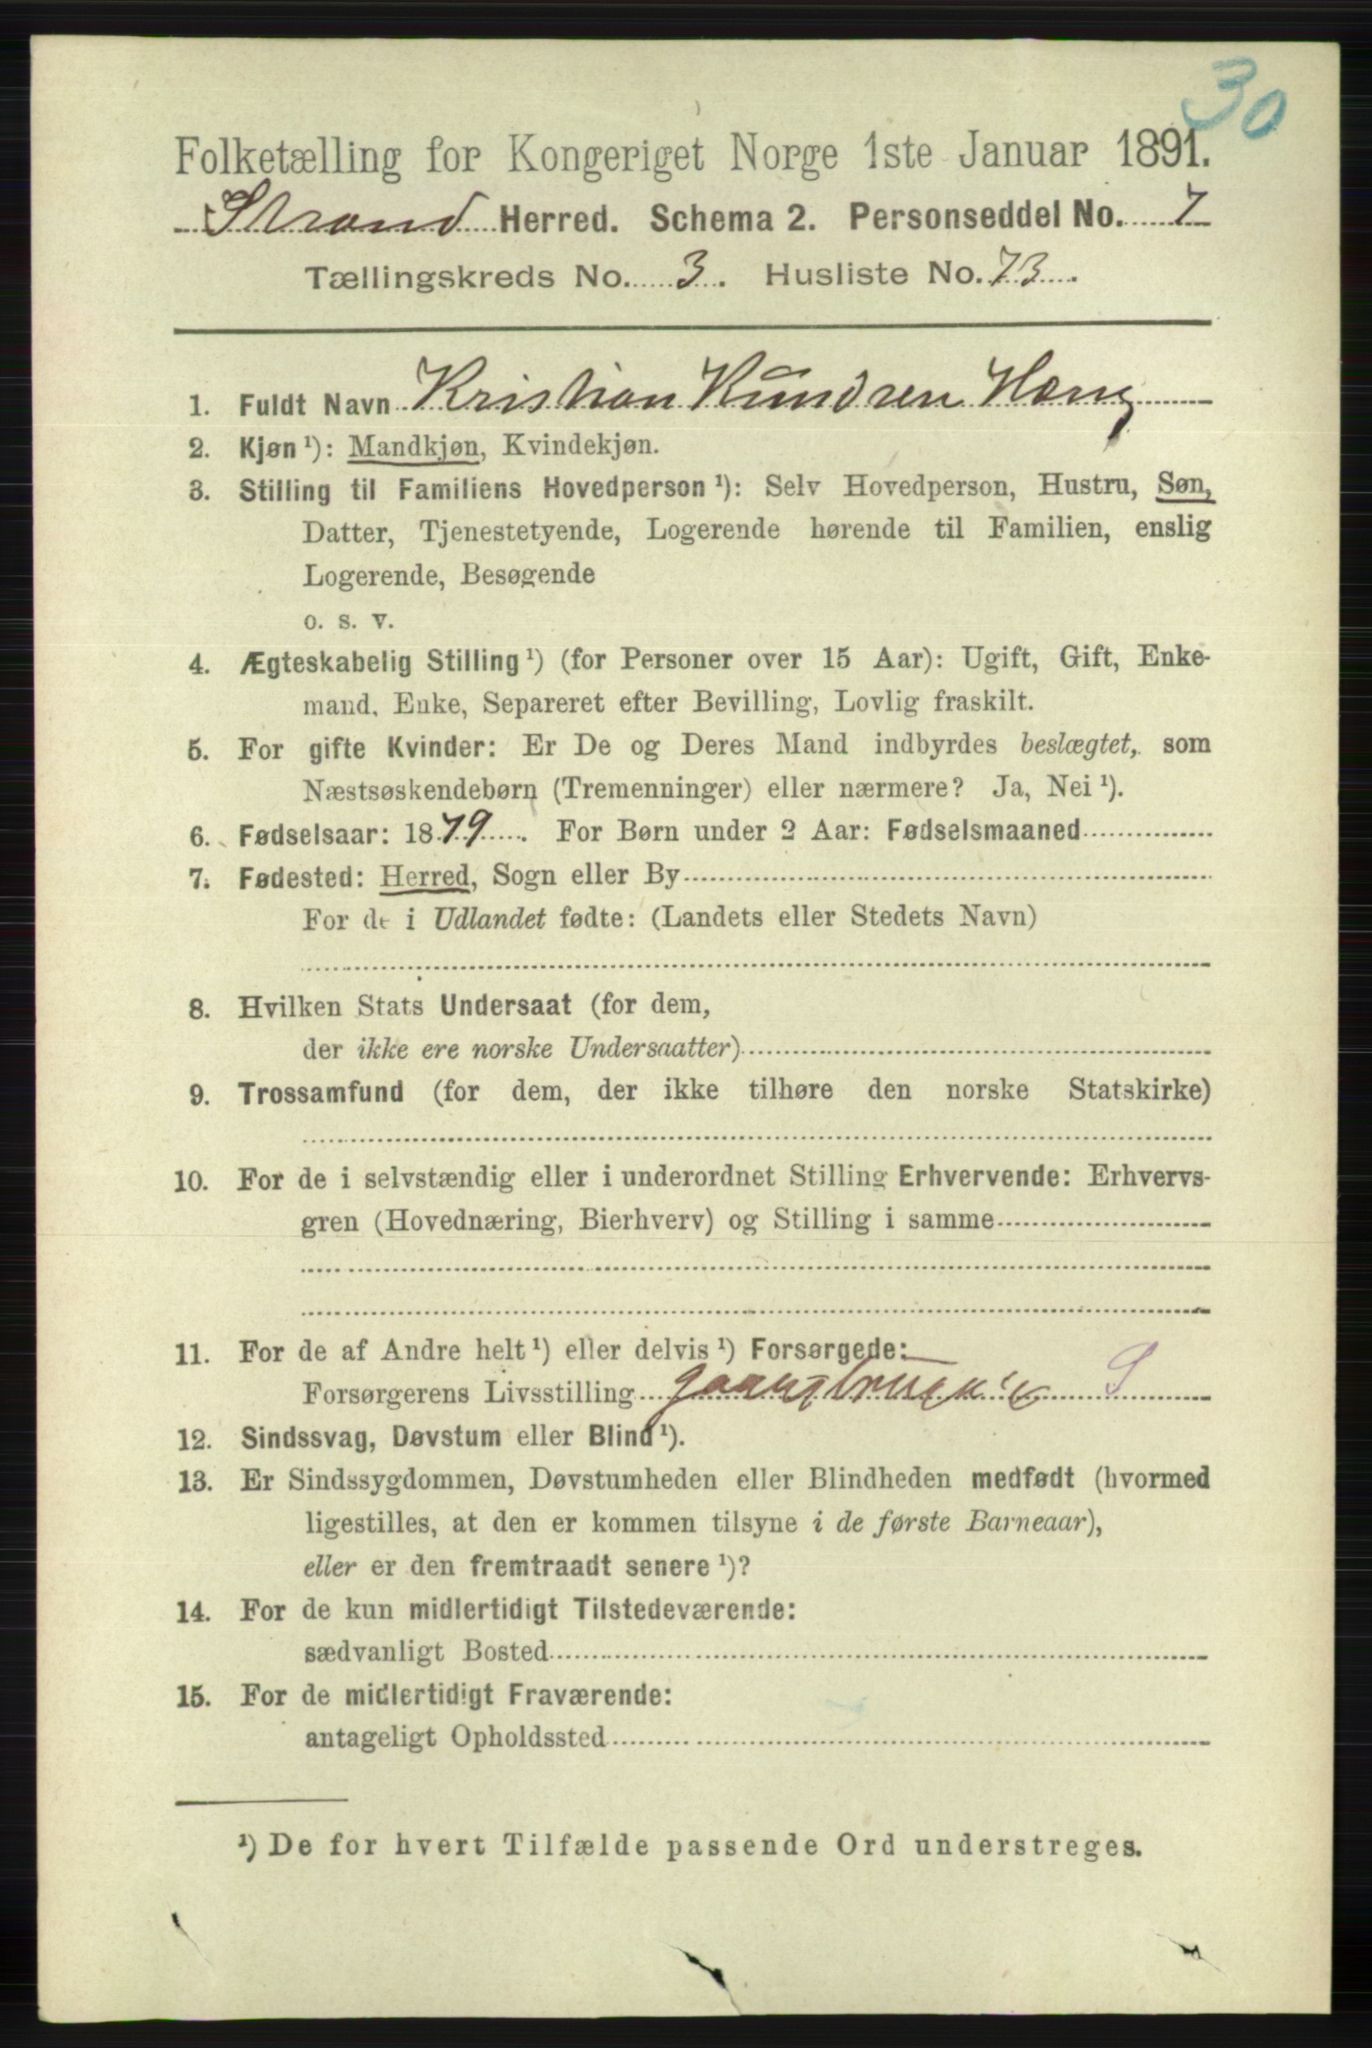 30
Folketælling for Kongeriget Norge 1ste Januar 1891.
Strand Herred. Schema 2. Personseddel No. 7
Tællingskreds No. 3. Husliste No. 73.
1. Fuldt Navn Kristian
2. Kjøn ¹): Mandkjøn, Kvindekjøn.
3. Stilling til Familiens Hovedperson ¹): Selv Hovedperson, Hustru, Søn,
Datter, Tjenestetyende, Logerende hørende til Familien, enslig
Logerende, Besøgende
o. s. v.
4. Ægteskabelig Stilling ¹) (for Personer over 15 Aar): Ugift, Gift, Enke-
mand, Enke, Separeret efter Bevilling, Lovlig fraskilt.
5. For gifte Kvinder: Er De og Deres Mand indbyrdes beslægtet, som
Næstsøskendebørn (Tremenninger) eller nærmere? Ja, Nei ¹).
6. Fødselsaar: 1879. For Børn under 2 Aar: Fødselsmaaned
7. Fødested: Herred, Sogn eller By
For de i Udlandet fødte: (Landets eller Stedets Navn)
8. Hvilken Stats Undersaat (for dem,
der ikke ere norske Undersaatter)
9. Trossamfund (for dem, der ikke tilhøre den norske Statskirke)
10. For de i selvstændig eller i underordnet Stilling Erhvervende: Erhvervs-
gren (Hovednæring, Bierhverv) og Stilling i samme
11. For de af Andre helt ¹) eller delvis ¹) Forsørgede:
Forsørgerens Livsstilling S
12. Sindssvag, Døvstum eller Blind ¹).
13. Er Sindssygdommen, Døvstumheden eller Blindheden medfødt (hvormed
ligestilles, at den er kommen tilsyne i de første Barneaar),
eller er den fremtraadt senere ¹)?
14. For de kun midlertidigt Tilstedeværende:
sædvanligt Bosted
15. For de midlertidigt Fraværende:
antageligt Opholdssted
¹) De for hvert Tilfælde passende Ord understreges.